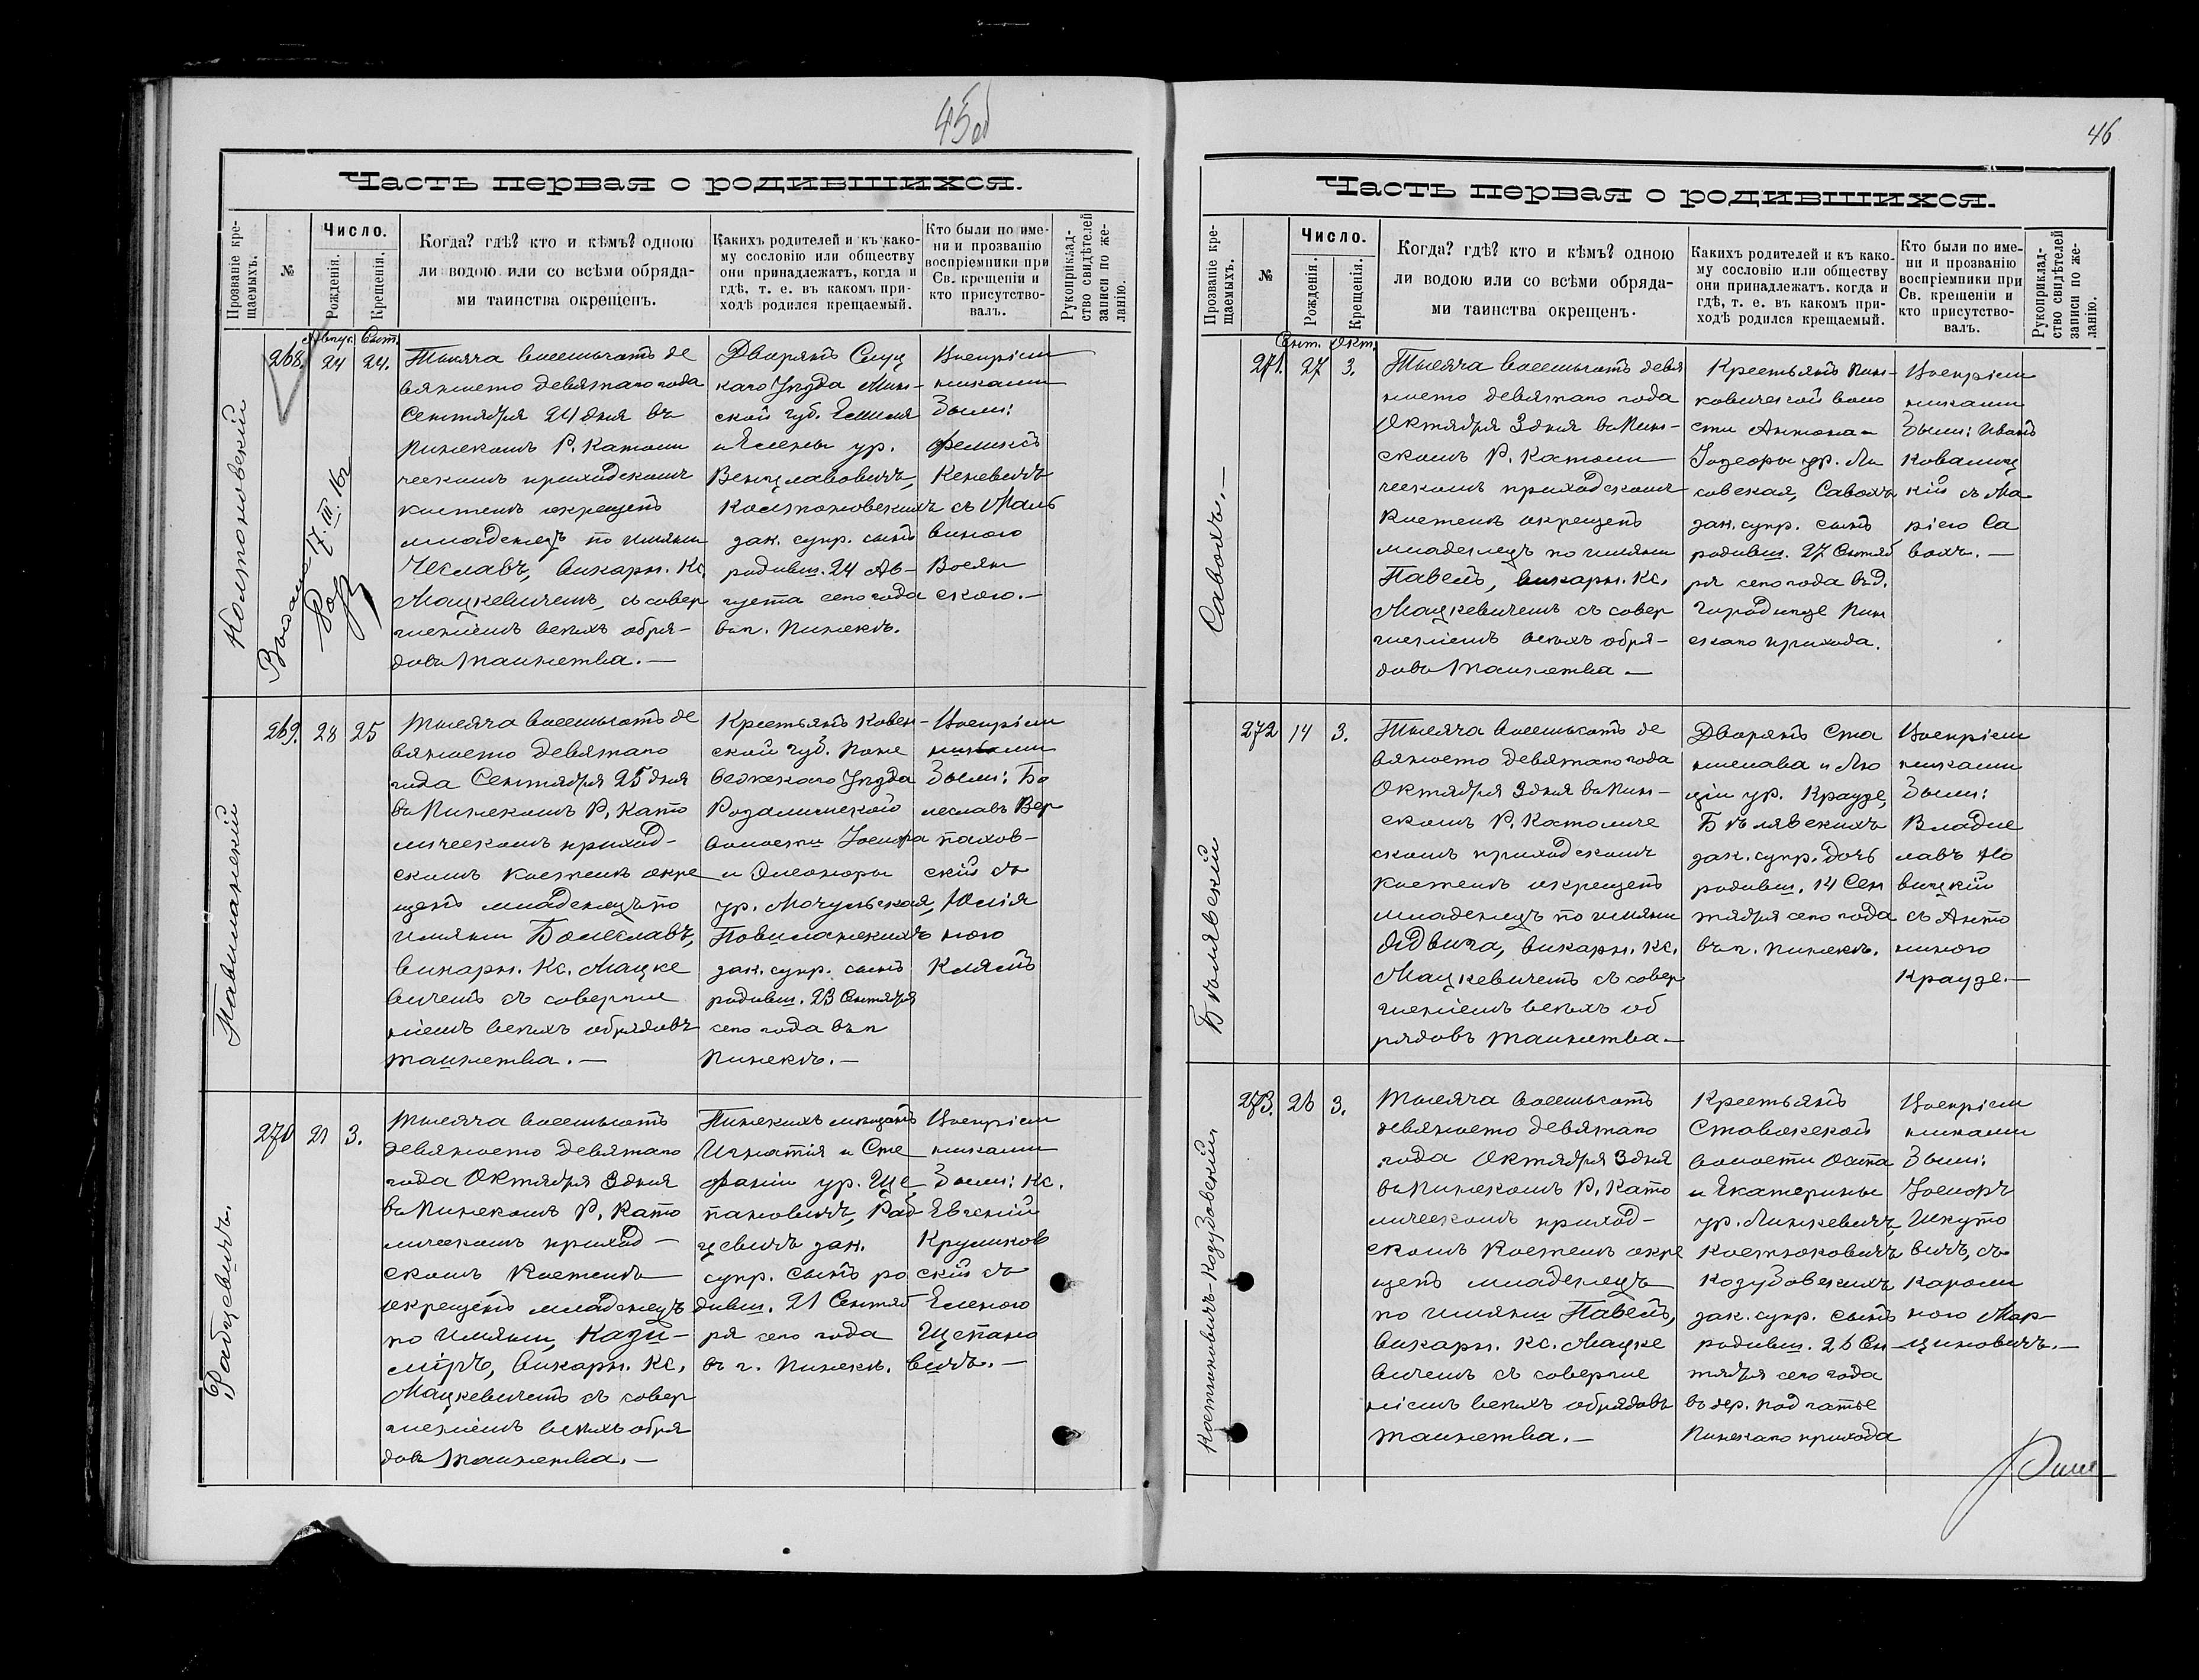 45об
Часть первая о родившихся.
Прозваніе крещаемыхъ.
№
Число.
Рожденія.
Крещенія.
Когда? гдѣ? кто и кѣмъ? одною
ли водою или со всѣми обряда-
ми таинства окрещенъ.
Какихъ родителей и къ како-
му сословію или обществу
они принадлежатъ, когда и
гдѣ, т. е. въ какомъ при-
ходѣ родился крещаемый.
Кто были по име-
ни и прозванію
воспріемники при
Св. крещеніи и
кто присутство-
валъ.
Рукоприклад-
ство свидѣтелей
записи по же-
ланію.
Колтоновскій
268.
Авгус. Сент.
24 24.
17. III. 16г
Тысяча восемьсотъ де
вяносто девятаго года
Сентября 24 дня въ
Пинскомъ Р. Католи
ческомъ приходскомъ
костелѣ окрещенъ
младенецъ по имяни
Чеславъ, викарн. Кс.
Мацкевичемъ, съ совер
шеніемъ всѣхъ обря-
довъ таинства. —
Дворянъ Слуц
каго Уѣзда Мин-
ской губ. Емиля
и Елены ур.
Венцлавовичъ,
Колтоновскихъ
зак. супр. сынъ
родивш. 24 Ав-
густа сего года
въ г. Пинскѣ.
Воспріем
никами
были:
Феликсъ
Кеневичъ
съ Маль
виною
Волян
скою. —
Павиланскій
269. 28 25
Тысяча восемьсотъ де
вяносто девятаго
года Сентября 25 дня
въ Пинскомъ Р. Като
лическомъ приход-
скомъ костелѣ окре
щенъ младенецъ по
имяни Болеславъ,
викарн. Кс. Мацке
вичемъ съ соверше
ніемъ всѣхъ обрядовъ
таинства. —
Крестьянъ Ковен-
ской губ. Поне
вежскаго Уѣзда
Розалинской
волости Іосифа
и Элеоноры
ур. Мочульская,
Повиланскихъ
зак. супр. сынъ
родивш. 23 Сентября
сего года въ г
Пинскѣ. —
Воспріем
никами
были: Бо
леславъ Вер
пахов-
скій съ
Юлія
ною
Клямъ
Рабцевичъ.
270 21 3.
Тысяча восемьсотъ
девяносто девятаго
года Октября 3 дня
въ Пинскомъ Р. Като
лическомъ приход-
скомъ Костелѣ
окрещенъ младенецъ
по имяни, Кази-
міръ, викарн. Кс.
Мацкевичемъ съ совер
шеніемъ всѣхъ обря
довъ таинства. —
Пинскихъ мѣщанъ
Игнатія и Сте
фаніи ур. Ще
пановичъ, Раб
цевичъ зак.
супр. сынъ ро
дивш. 21 Сентяб
ря сего года
въ г. Пинскѣ.
Воспріем
никами
были: Кс.
Евгеній
Круликов
скій съ
Еленою
Щепано
вичъ. —
46
Часть первая о родившихся.
Прозваніе крещаемыхъ.
№
Число.
Рожденія.
Крещенія.
Когда? гдѣ? кто и кѣмъ? одною
ли водою или со всѣми обряда-
ми таинства окрещенъ.
Какихъ родителей и къ како-
му сословію или обществу
они принадлежатъ. когда и
гдѣ, т. е. въ какомъ при-
ходѣ родился крещаемый.
Кто были по име-
ни и прозванію
воспріемники при
Св. крещеніи и
кто присутство-
валъ.
Рукоприклад-
ство свидѣтелей
записи по же-
ланію.
Савохъ. —
Сент. Окт.
271. 27 3.
Тысяча восемьсотъ девя
носто девятаго года
Октября 3 дня въ Пин-
скомъ Р. Католи
ческомъ приходскомъ
Костелѣ окрещенъ
младенецъ по имяни
Павелъ, викарн. Кс.
Мацкевичемъ съ совер
шеніемъ всѣхъ обря-
довъ таинства —
Крестьянъ Пин-
ковичской воло
сти Антона и
Теодоры ур. Ли
совская, Савохъ
зак. супр. сынъ
родивш. 27 Сентяб
ря сего года въ д.
Городище Пин
скаго прихода.
Воспріем
никами
были: Иванъ
Ковалиц
кій съ Ма
ріею Са
вохъ. —
Бѣлявскій
272 14 3.
Тысяча восемьсотъ де
вяносто девятаго года
Октября 3 дня въ Пин-
скомъ Р. Католиче
скомъ приходскомъ
костелѣ окрещенъ
младенецъ по имяни
Ядвига, викарн. Кс.
Мацкевичемъ съ совер
шеніемъ всѣхъ об
рядовъ таинства —
Дворянъ Ста
нислава и Лю
ціи ур. Краузе,
Бѣлявскихъ
зак. супр. дочь
родивш. 14 Сен
тября сего года
въ г. Пинскѣ.
Воспріем
никами
были:
Владис
лавъ Но
вицкій
съ Анто
ниною
Краузе. —
Костюковичъ-Козубовскій.
273. 26 3.
Тысяча восемьсотъ
девяносто девятаго
года Октября 3 дня
въ Пинскомъ Р. Като
лическомъ приход-
скомъ Костелѣ окре
щенъ младенецъ
по имяни Павелъ,
викарн. Кс. Мацке
вичемъ съ соверше
ніемъ всѣхъ обрядовъ
таинства. —
Крестьянъ
Ставокской
волости Осипа
и Екатерины
ур. Линкевичъ
Костюковичъ
Козубовскихъ
зак. супр. сынъ
родивш. 26 Сен
тября сего года
въ дер. Подгатье
Пинскаго прихода
Воспріем
никами
были:
Іосифъ
Шкуто
вичъ, съ
Кароли
ною Мар-
циновичъ. —